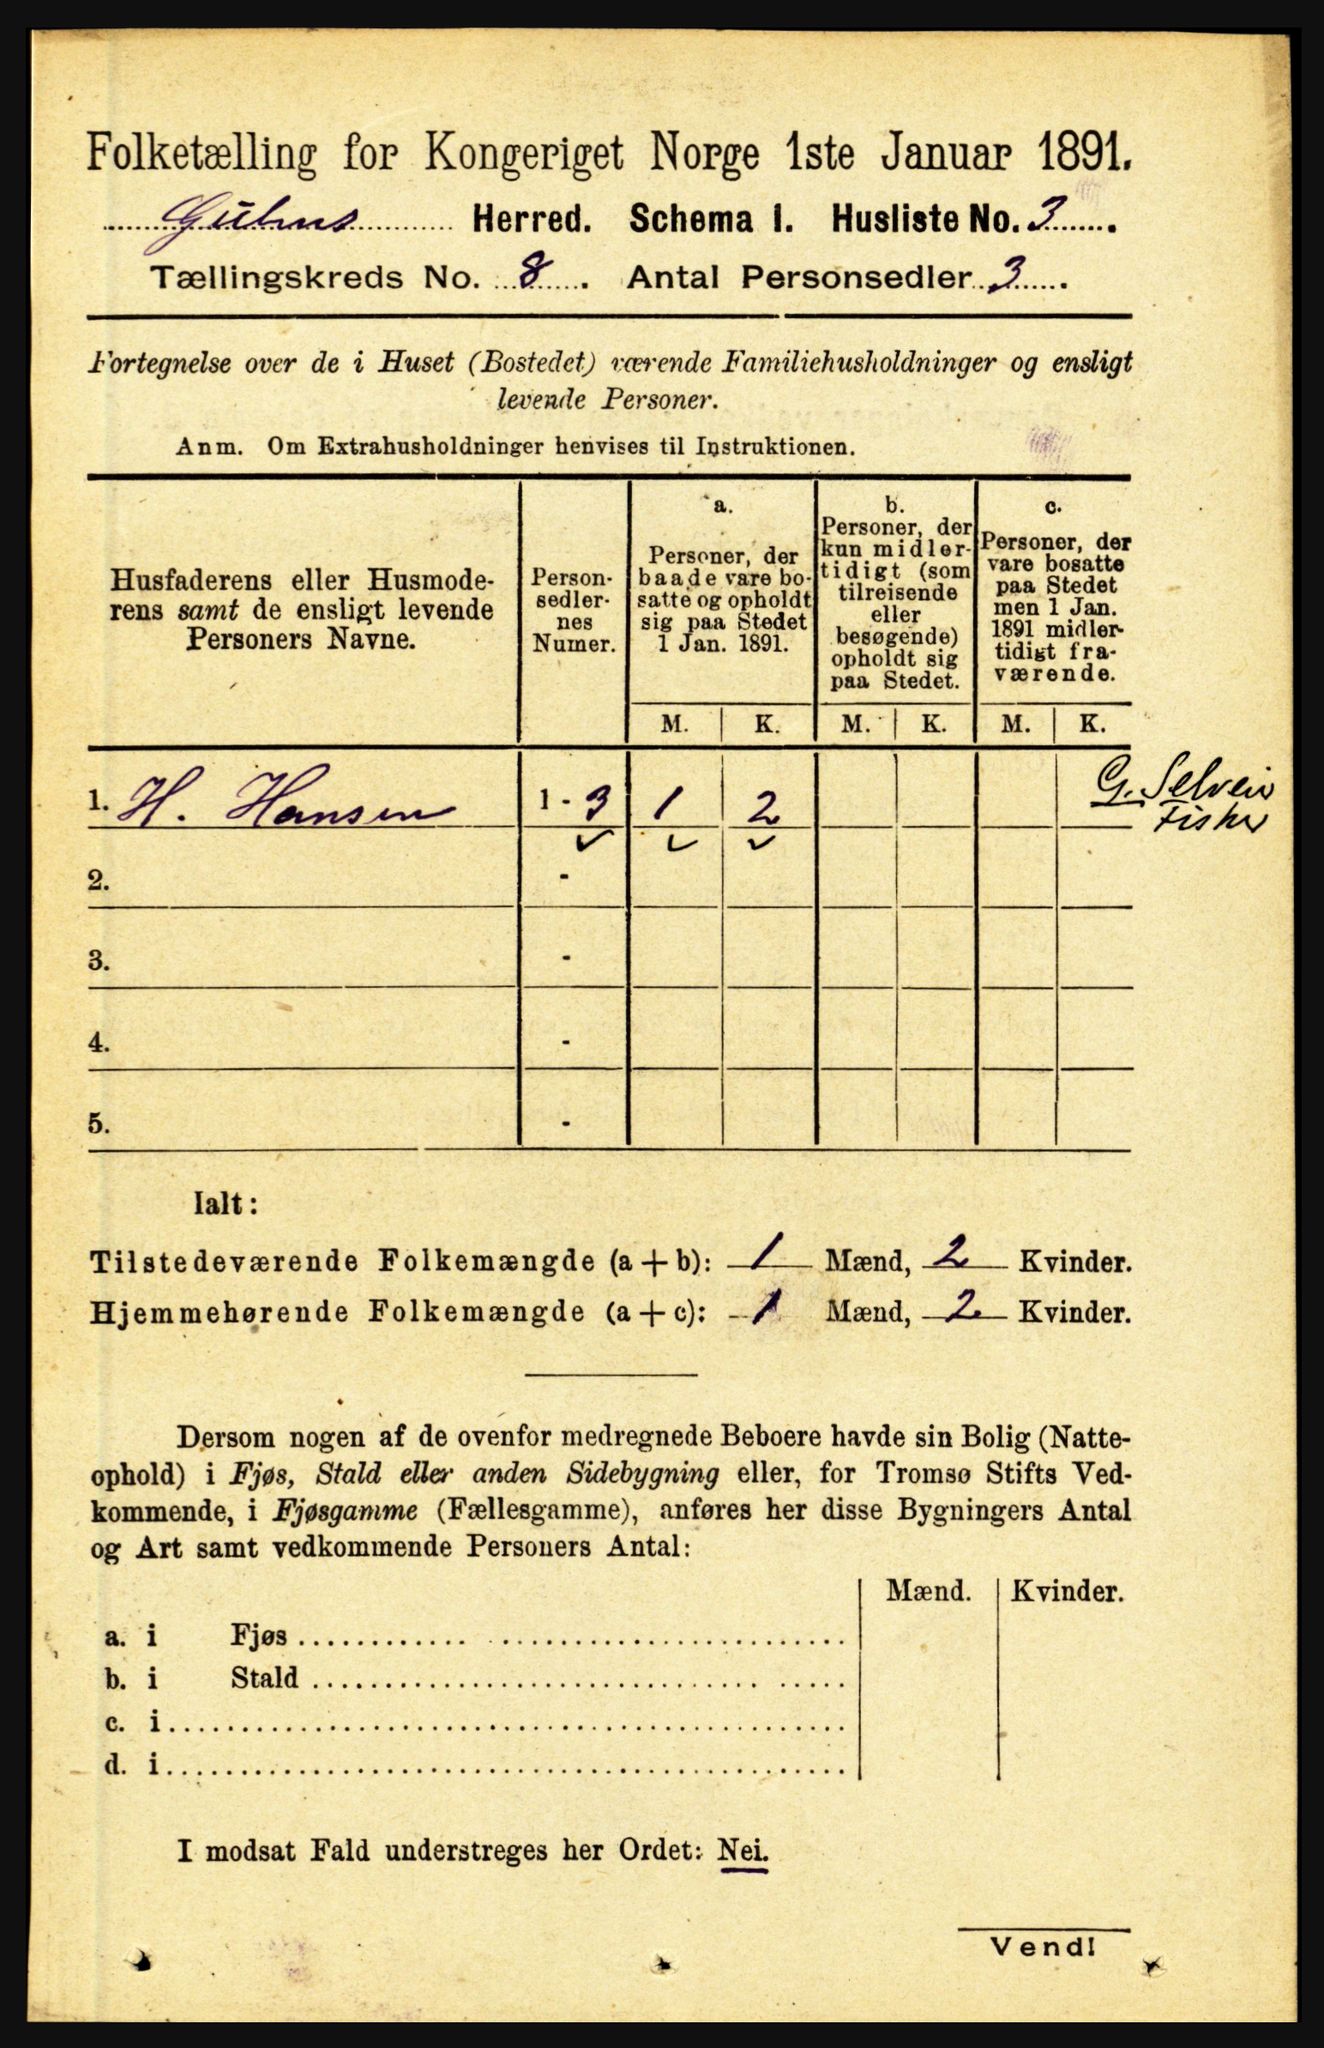 Folketælling for Kongeriget Norge 1ste Januar 1891.
Herred. Schema 1. Husliste No. 3
Tællingskreds No. 8. Antal Personsedler 3.
Fortegnelse over de i Huset (Bostedet) værende Familiehusholdninger og ensligt
levende Personer.
Anm. Om Extrahusholdninger henvises til Instruktionen.
Husfaderens eller Husmode-
rens samt de ensligt levende
Personers Navne.
Person-
sedler-
nes
Numer.
a.
Personer, der
baade vare bo-
satte og opholdt
sig paa Stedet
1 Jan. 1891.
b.
Personer, der
kun midler-
tidigt (som
tilreisende
eller
besøgende)
opholdt sig
paa Stedet.
c.
Personer, der
vare bosatte
paa Stedet
men 1 Jan.
1891 midler-
tidigt fra-
værende.
M. K. M. K. M. K.
1. H. Hansen 1 - 3 1 2
G. Selveier
Fisker
2. -
3. -
4. -
5. -
Ialt:
Tilstedeværende Folkemængde (a + b): 1 Mænd, 2 Kvinder.
Hjemmehørende Folkemængde (a + c): 1 Mænd, 2 Kvinder.
Dersom nogen af de ovenfor medregnede Beboere havde sin Bolig (Natte-
ophold) i Fjøs, Stald eller anden Sidebygning eller, for Tromsø Stifts Ved-
kommende, i Fjøsgamme (Fællesgamme), anføres her disse Bygningers Antal
og Art samt vedkommende Personers Antal:
Mænd. Kvinder.
a. i Fjøs
b. i Stald
c. i
d. i
I modsat Fald understreges her Ordet: Nei.
Vend!